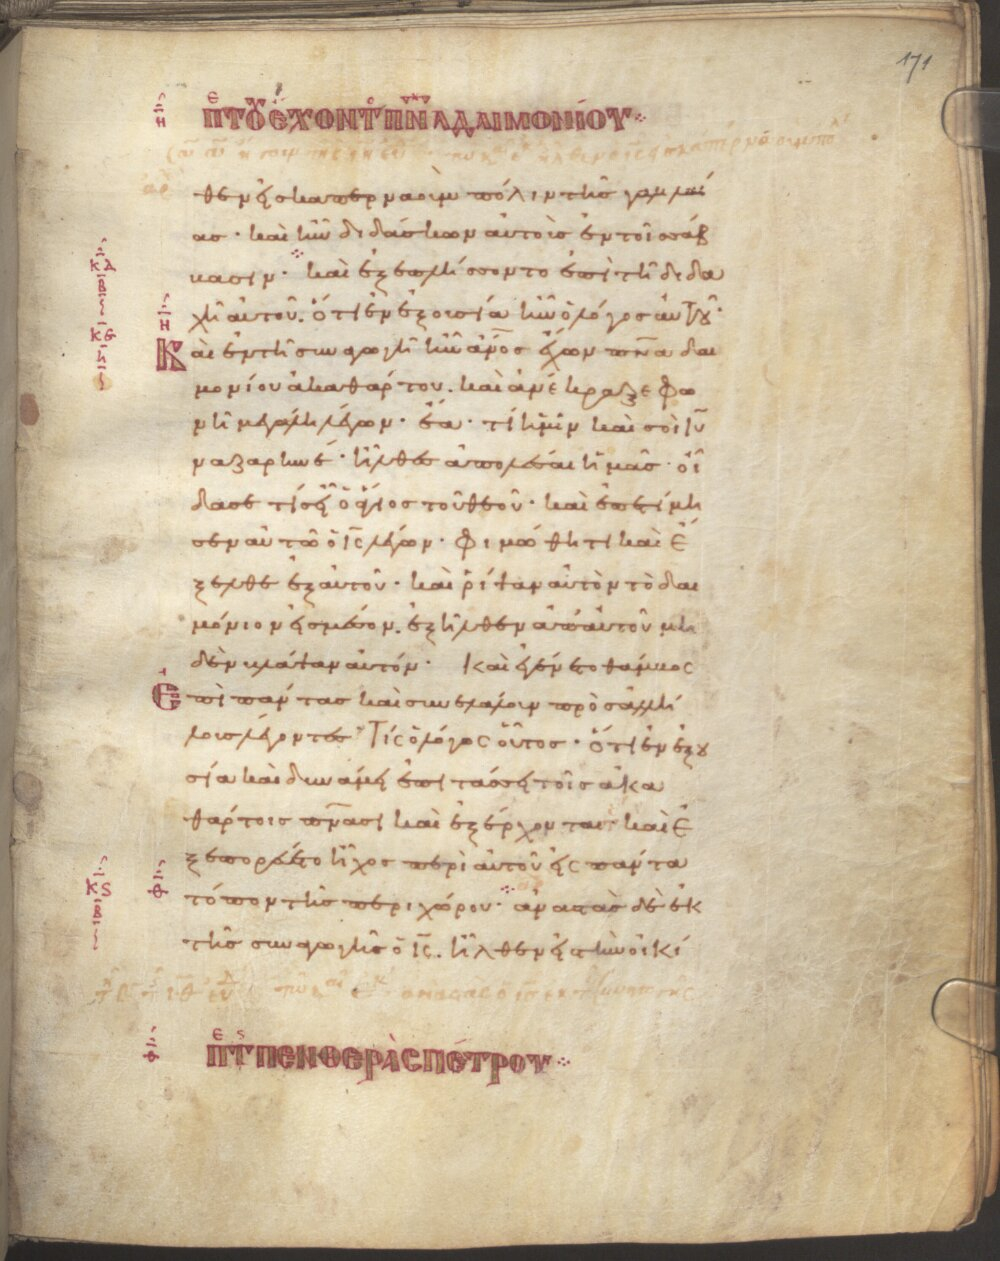 171
η
περὶ τοῦ ἔχοντος πνα δαιμονίου
θεν εἰς καπερναοὺμ πόλιν τῆς γαλιλαί
ας· καὶ ἦν διδάσκων αὐτοὺς ἐν τοῖς σάβ
κδ β
βασιν· καὶ ἐξεπλήσσοντο ἐπὶ τῆ διδα
χῆ αὐτοῦ. ὅτι ἐν ἐξουσία ἦν ὁ λόγος αὐτοῦ·
κε η
η
Καὶ ἐν τῆ συναγωγῆ ἦν ἄνος ἔχων πνα δαι
μονίου ἀκαθάρτου. καὶ ἀνέκραξε φω
νῆ μεγάλη λέγων· ἔα· τί ἡμῖν καὶ σοὶ ιυ
ναζαρηνέ· ἦλθες ἀπολέσαι ἡμᾶς· οἶ
δα σε τίς εἶ ὁ ἅγιος τοῦ θεοῦ· καὶ ἐπετίμη
σεν αὐτῶ ὁ ις λέγων· φιμώθητι καὶ ἔ
ξελθε ἐξ αὐτοῦ· καὶ ῥίψαν αὐτὸν τὸ δαι
μόνιον εἰς μέσον. ἐξῆλθεν ἀπ' αὐτοῦ μη
δὲν βλάψαν αὐτόν· Καὶ ἐγένετο θάμβος
ἐπὶ πάντας καὶ συνελάλουν πρὸς ἀλλή
λοις λέγοντες Τίς ὁ λόγος οὗτος· ὅτι ἐν ἐξου
σία καὶ δυνάμει ἐπιτάσσει τοῖς ἀκα
θάρτοις πνασι καὶ ἐξέρχονται· καὶ ἐ
ξεπορεύετο ἦχος περὶ αὐτοῦ εἰς πάντα
κς β
θ
τόπον τῆς περιχώρου· ἀναστὰς δὲ ἐκ
τῆς συναγωγῆς ὁ ις. ἦλθεν εἰς τὴν οἰκί
θ
περὶ τῆς πενθερᾶς πέτρου